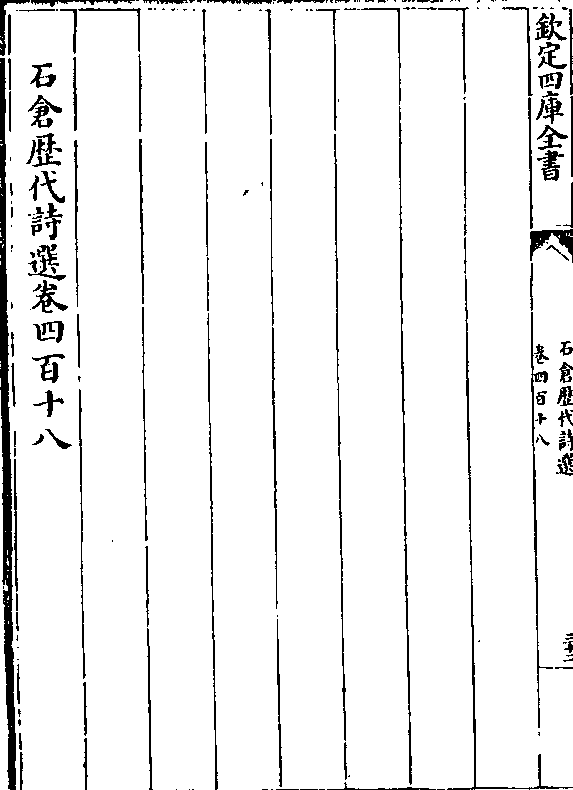 欽定四庫全書
石倉歴代詩選
卷四百十八
石倉歴代詩選卷四百十八